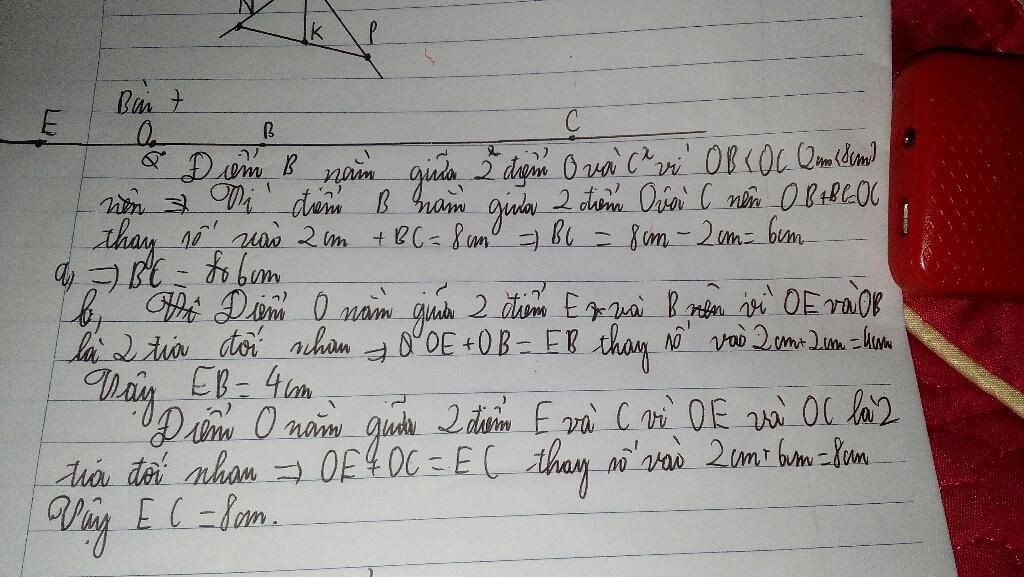 N K P
Bài 7
E O B C
a, Điểm B nằm giữa 2 điểm O và C vì OB < OC (2cm < 8cm)
nên => Vì điểm B nằm giữa 2 điểm O và C nên OB + BC = OC
thay số vào 2cm + BC = 8cm => BC = 8cm - 2cm = 6cm
a, => BC = 6cm
b, Điểm O nằm giữa 2 điểm E và B vì OE và OB
là 2 tia đối nhau => OE + OB = EB thay số vào 2cm + 2cm = 4cm
Vậy EB = 4cm
Điểm O nằm giữa 2 điểm E và C vì OE và OC là 2
tia đối nhau => OE + OC = EC thay số vào 2cm + 6cm = 8cm
Vậy EC = 8cm.